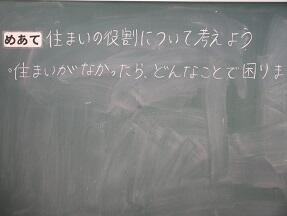 めあて 住まいの役割について考えよう
◦住まいがなかったら、どんなことで困りま